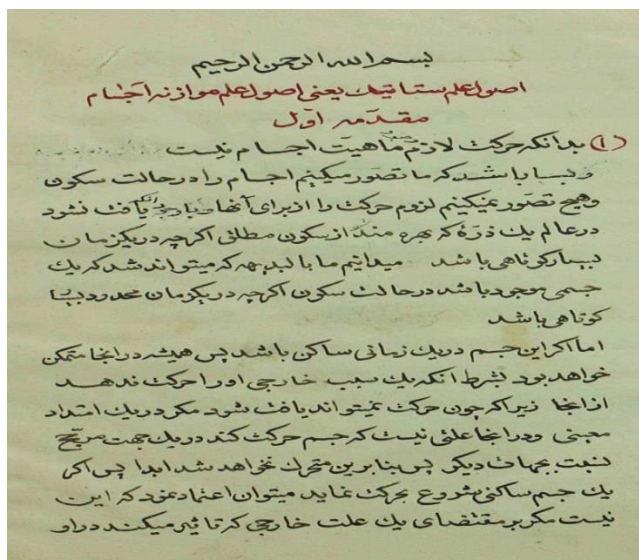 بسم الله الرحمن الرحیم
اصول علم ستاتیك یعنی اصول علم موازنه اجسام
مقدمه اول
(۱) بدانکه حرکت لازم ماهیت اجسام نیست
و بسا باشد که ما تصور میکنیم اجسام را در حالت سکون
و هیچ تصور نمیکنیم لزوم حرکت را از برای آنها یافت نشود
در عالم یك ذرۀ که بهره مند از سکون مطلق اگرچه در یکزمان
بسیار کوتاهی باشد میدانیم ما بالبدیهه که میتواند شد که یك
جسمی موجود باشد در حالت سکون اگرچه در یکزمان محدود بسیار
کوتاهی باشد
اما اگر این جسم در یك زمانی ساکن باشد پس همیشه در انجا متمکن
خواهد بود بشرط آنکه یك سبب خارجی او را حرکت ندهد
از انجا زیرا که چون حرکت نمیتواند یافت شود مگر در یك امتداد
معینی و در انجا علتی نیست که جسم حرکت کند در یك جهت مرجح
نسبت بجهات دیگر پس بنابرین متحرك نخواهد شد ابدا پس اگر
یك جسم ساکنی شروع بحرکت نماید میتوان اعتماد نمود که این
نیست مگر بر مقتضای یك علت خارجی که تاثیر میکند در او